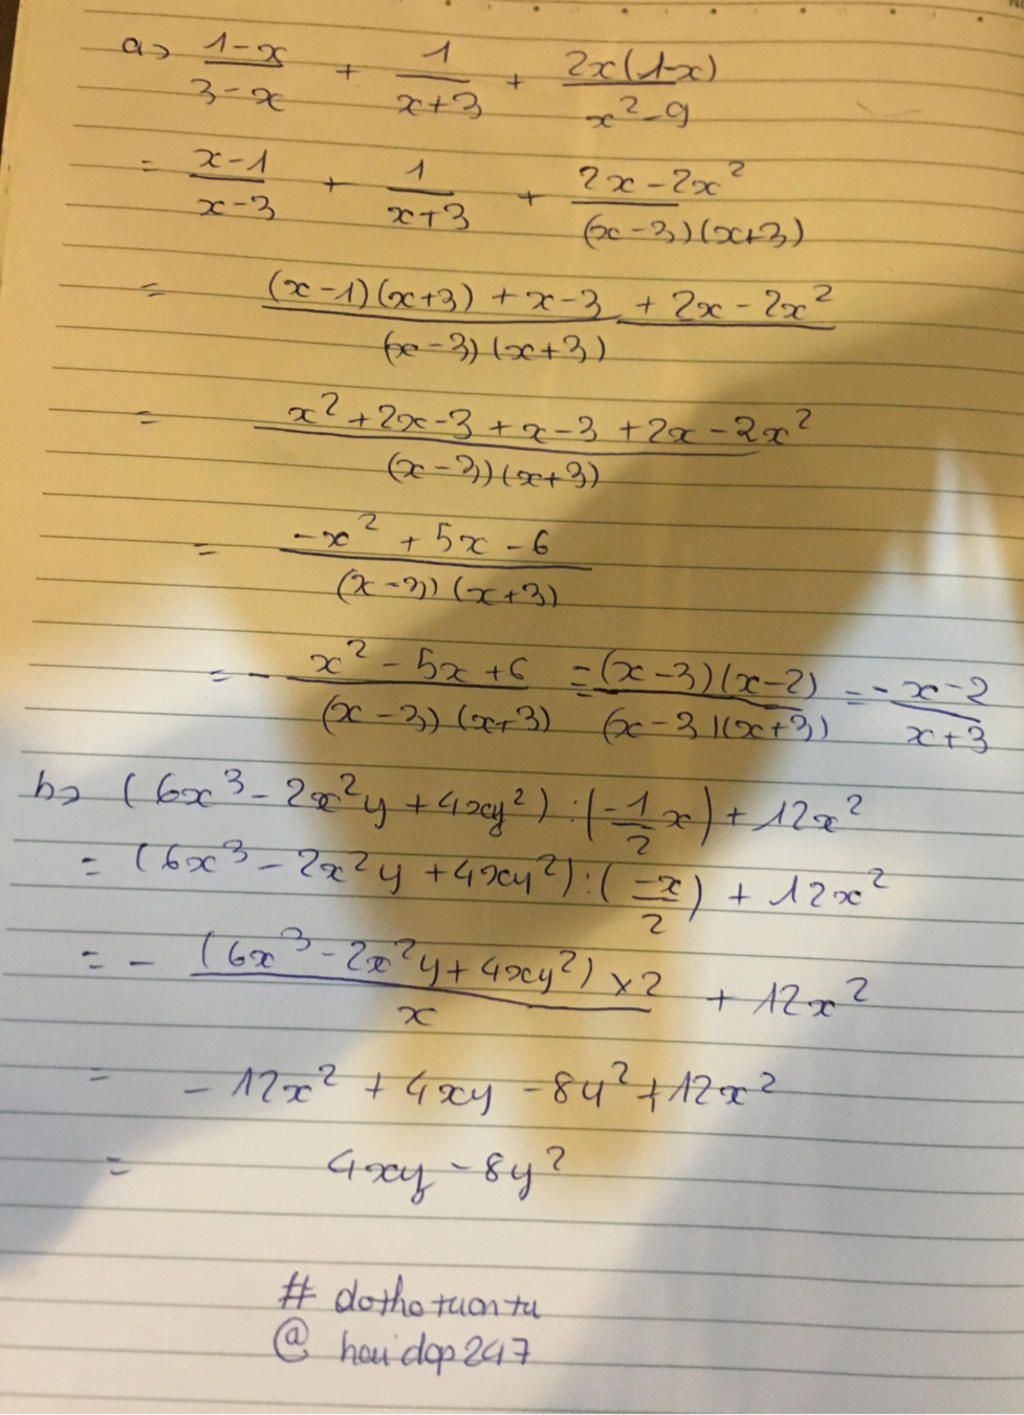 a> (1-x)/(3-x) + 1/(x+3) + 2x(1-x)/(x²-9)
= (x-1)/(x-3) + 1/(x+3) + (2x-2x²)/((x-3)(x+3))
= ((x-1)(x+3) + x-3 + 2x-2x²)/((x-3)(x+3))
= (x²+2x-3+x-3+2x-2x²)/((x-3)(x+3))
= (-x²+5x-6)/((x-3)(x+3))
= - (x²-5x+6)/((x-3)(x+3)) = (x-3)(x-2)/((x-3)(x+3)) = - (x-2)/(x+3)
b> (6x³-2x²y+4xy²):(-1/2 x)+12x²
= (6x³-2x²y+4xy²):(-x/2) + 12x²
= - ((6x³-2x²y+4xy²)×2)/x + 12x²
= -12x² + 4xy - 8y² + 12x²
= 4xy - 8y²
# dothotuantu
@ hoidap247